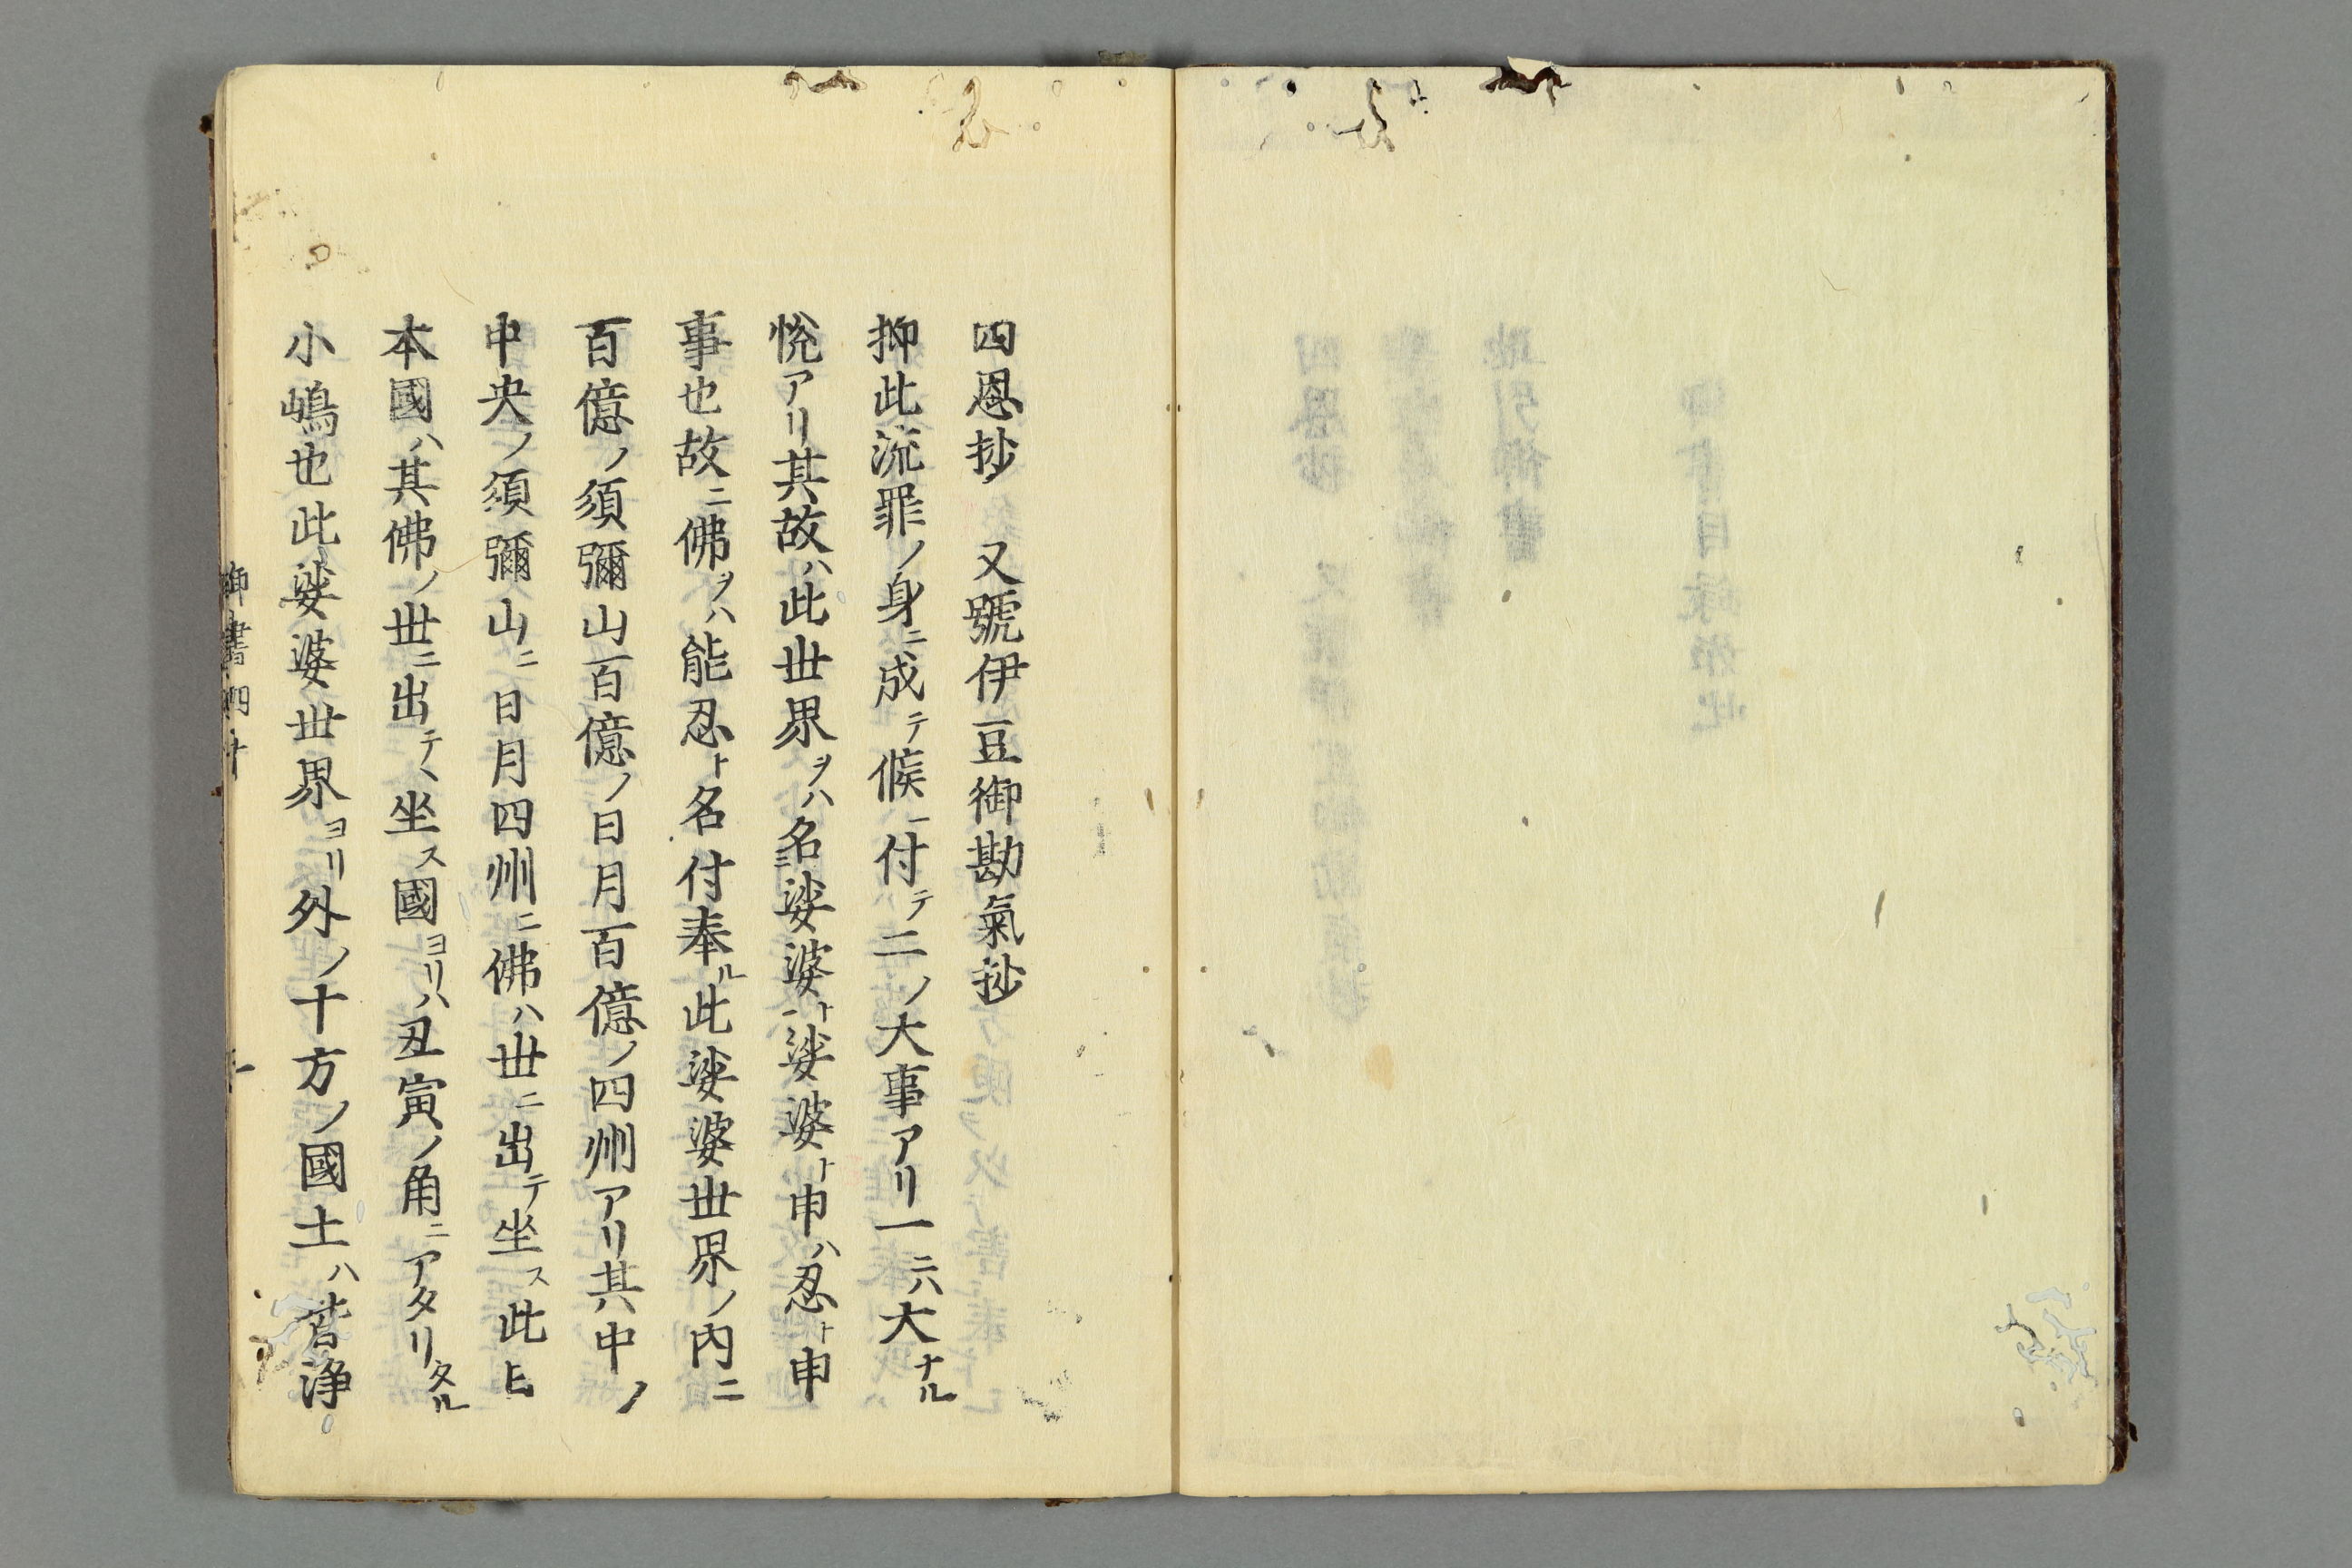 四恩抄　又號伊豆御勘氣抄
抑此流罪ノ身ニ成テ候ニ付テ二ノ大事アリ一ニハ大ナル
悅アリ其故ハ此世界ヲハ名娑婆ト娑婆ト申ハ忍ト申
事也故ニ佛ヲハ能忍ト名付奉ル此娑婆世界ノ內ニ
百億ノ須彌山百億ノ日月百億ノ四州アリ其中ノ
中央ノ須彌山ニ日月四州ニ佛ハ世ニ出テ坐ス此ヒ
本國ハ其佛ノ世ニ出テヽ坐ス國ヨリハ丑寅ノ角ニアタリタル
小嶋也此娑婆世界ヨリ外ノ十方ノ國土ハ皆淨
御書四十